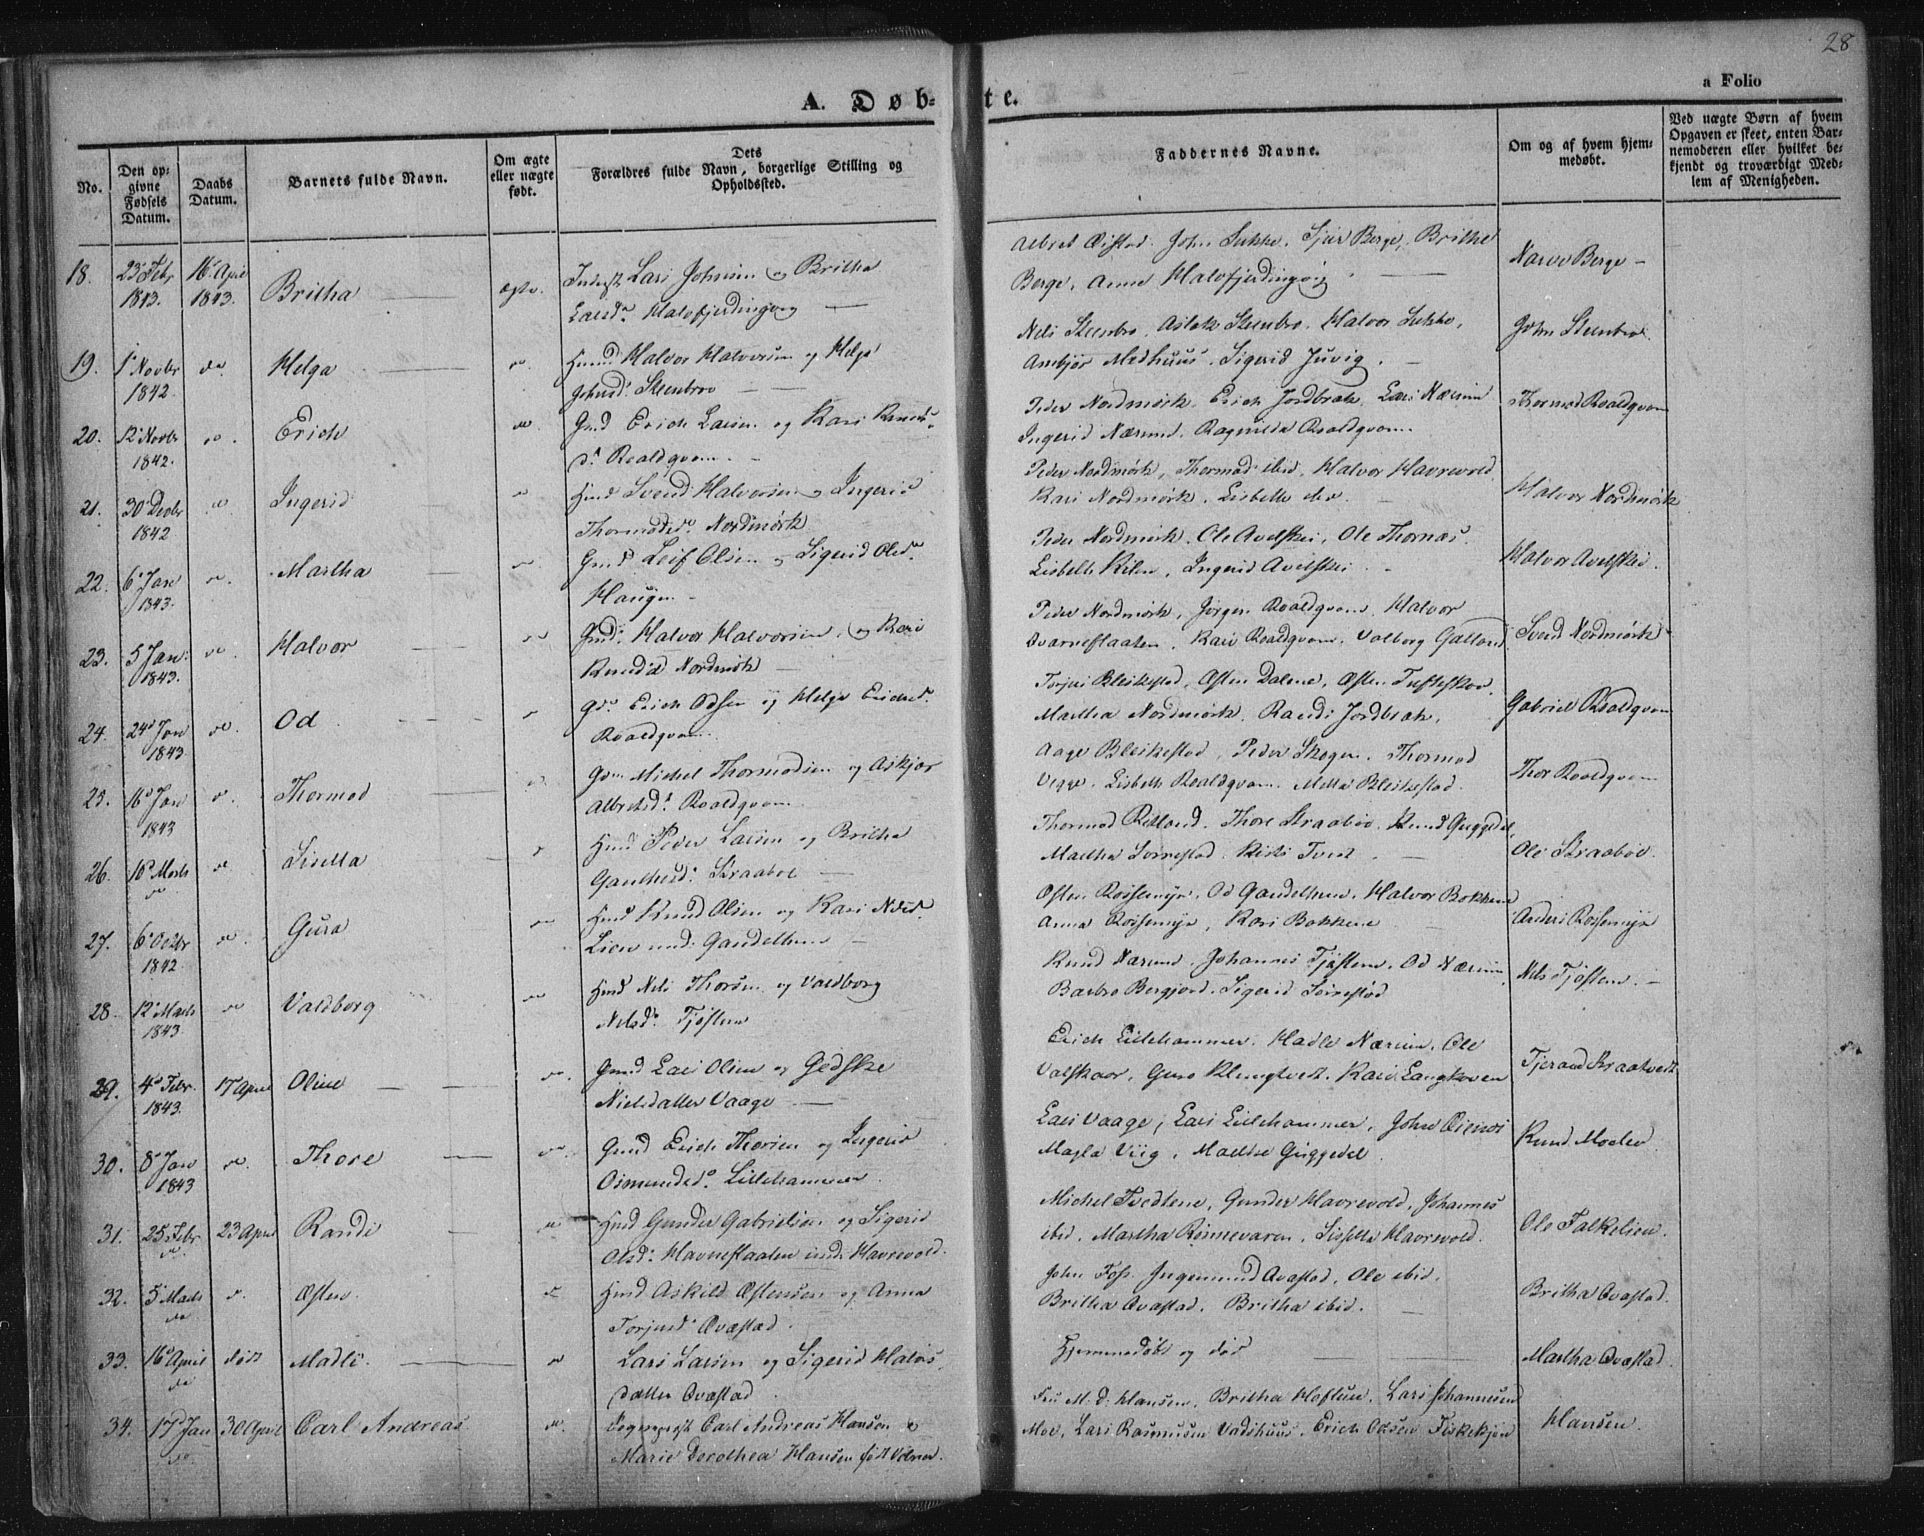 28
A. Døbte.
a Folio
No.
Den opgivne Fødsels Datum.
Daabs Datum.
Barnets fulde Navn.
Om ægte eller uægte født.
Dets Forældres fulde Navn, borgerlige Stilling og Opholdssted.
Faddernes Navne.
Om og af hvem hjemmedøbt.
Ved uægte Børn af hvem Opgaven er skeet, enten Barnemoderen eller hvilket bekjendt og troværdigt Medlem af Menigheden.
18. 23 Febr 1843. 16 April 1843. Britha ægte. Lars Johnsen og Britha
Larsd. Halvfjerdingvog
John Sukke. Sjur Berge, Brithe
Berge, Anna Halvfjerdingvog
Berge
19. 1 Novbr 1842. do. Helga do. Hmd Halvor Halvorsen og Helga
Johnsd. Steenbro
Nels Steenbro, Aslak Steenbro, Halvor Sukke,
Anbjør Medhuus, Sigerid Juvig.
John Steenbro
20. 12 Novbr 1842. do. Erich do. Gmd Erich Larsen og Kari Knuds-
d. Roaldqvam.
Peder Nordmørk, Erich Jordbræk, Lars Nærim
Ingerid Nærim, Ragnilda Roaldqvam.
Thormod Roaldqvam
21. 30 Decbr 1842 do Ingerid do Hmd Svend Halvorsen og Ingerid
Thormodsd. Nordmørk
Peder Nordmørk, Thormod ibid, Halvor Havrevold
Kari Nordmørk, Lisbeth do.
Halvor Nordmørk
22. 6 Jan 1843. do. Martha do. Gmd Leif Olsen og Sigerid Olsd.
Haugen
Peder Nordmørk, Ole Avelskei, Ole Thornæs
Lisbeth Kilen, Ingerid Avelskei.
Halvor Avelskei.
23. 5 Jan: 1843. do. Halvor do Gmd. Halvor Halvorsen og Kari
Knudsd. Nordmørk
Peder Nordmørk, Jørgen Roaldqvam, Halvor
Qvarnestaaten, Kari Roaldqvam, Valborg Galland,
Svend Nordmørk
24. 24 Jan 1843 do. Od. do Gmd. Erich Odsen og Helga Erichsd.
Roaldqvam.
Torjus Bleikestad, Østen Dalene, Østen Tufteskov,
Martha Nordmørk, Randi Jordbræk.
Gabriel Roaldqvam
25. 16 Jan 1843 do. Thormod do Gdm. Michel Thormodsen og Askjær
Albretsd. Roaldqvam
Aage Bleikestad, Peder Skogen, Thormod
Vegge, Lisbeth Roaldqvam, Metta Bleikestad.
Thor Roaldqvam
26. 10 Marts do do Sisella do Hmd Peder Larsen og Britha
Gautesd. Straaboe
Thormod Rødland, Thore Straaboe, Knud Guggedal,
Martha Sørrestad, Kisti Tvedt.
Ole Straaboe.
27. 6 Octbr 1842. do. Gura do Hmd Knud Olsen og Kari Nelsd.
Lien und: Gandelhen
Østen Røssemyr, Od Gandelhen, Halvor Bakken
Anna Røssemyr, Kari Bakkene
Anders Røssemyr
28. 12 Marts 1843. do Valdborg do Hmd Nels Thorsen og Valdborg
Nelsd. Tjøsten
Knud Nærim, Johannes Tjøsten, Od Nærim,
Barbro Bergjord, Sigerid Sørrestad
Nels Tjøsten.
29. 4 Febr. 1843. 17 April Oline do. Gmd Lars Olsen og Gjedske
Nielsdatter Vaage
Erich Lillehammer, Hadle Nærim, Ole
Valskaar, Guro Klungtvedt, Kari Langhoven
Tjerand Straatvedt
30. 8 Jan 1843 do. Thore do. Gmd Erich Thorsen og Ingerid
Osmundsd. Lillehammer.
Lars Vaage, Lars Lillehammer, John Oienæs
Magla Viig, Marthe Guggedal.
Knud Moelev
31. 25 Febr do. 23 April Randi do Hmd Gunder Gabrielsen og Sigerid
Olsd. Havnestaaten und: Havrevold.
Michel Tvedtene, Gunder Havrevold, Johannes
ibid, Martha Rønnevaren, Sisella Havrevold.
Ole Falkelien.
32. 5 Marts do do. Østen. do Hmd Askild Østensen og Anna
Torjusd. Qvæstad.
John Foss, Ingemund Qvæstad, Ole ibid,
Britha Qvæstad, Britha ibid.
Britha Qvæstad.
33. 16 April do død Madle. do Lars Larsen og Sigerid Halvors
datter Qvæstad
Hjemmedøbt og død
Martha Qvæstad.
34. 17 Jan do 30 April Carl Andreas do. Carl Andreas Hansen og
Marie Dorothea Hansen født Volmer.
Fru M. D. Hansen, Britha Høftuen, Lars Johannesen
Moe, Lars Rasmussen Vadshuus, Erich Odsen Fiskekjøn
Hansen.